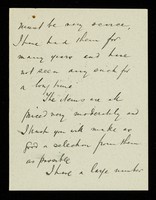 must be very scarce.
I have had them for
many years and have
not seen any such for
a long time.
The items are all
priced very moderately and
I trust you will make as
good a selection from them
as possible
I have a large number